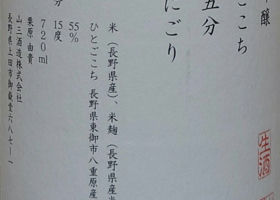 醸
ごこち
五分
にごり
生酒
米(長野県産)、米麹(長野県産米
ひとごこち 長野県東御市八重原産
55%
分 15度
720ml
栗原由貴
山三酒造株式会社
長野県上田市御嶽堂六八七-一